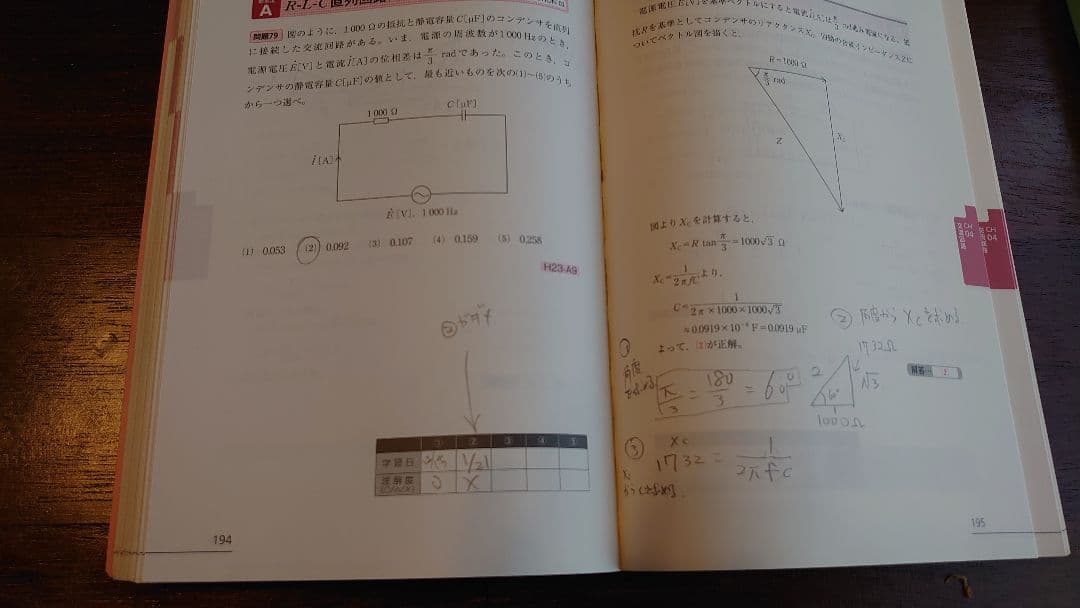 A
R-L-C直列回路
問題79 図のように，1000Ωの抵抗と静電容量C[μF]のコンデンサを直列
に接続した交流回路がある。いま，電源の周波数が1000Hzのとき，
電源電圧Ė[V]と電流İ[A]の位相差はπ/3 radであった。このとき，コ
ンデンサの静電容量C[μF]の値として，最も近いものを次の(1)～(5)のうち
から一つ選べ。
1000Ω
C[μF]
İ[A]
Ė[V]，1000Hz
(1) 0.053 (2) 0.092 (3) 0.107 (4) 0.159 (5) 0.258
H23-A9
① ② ③ ④ ⑤
学習日 1/21
理解度
194
抗Rを基準としてコンデンサのリアクタンスXC，回路の合成インピーダンスZに
ついてベクトル図を描くと，
R=1000Ω
π/3 rad
Z
XC
図よりXCを計算すると，
XC=R tan π/3=1000√3 Ω
XC=1/2πfCより，
C=1/2π×1000×1000√3
≒0.0919×10⁻⁶F=0.0919μF
よって，(2)が正解。
解答… (2)
② 角度から XCを求める
① 角度を求める
π/3 = 180/3 = 60°
2
60°
1732Ω
√3
1000Ω
③
XC
1732 = 1/2πfC
CH 04
交流回路
195